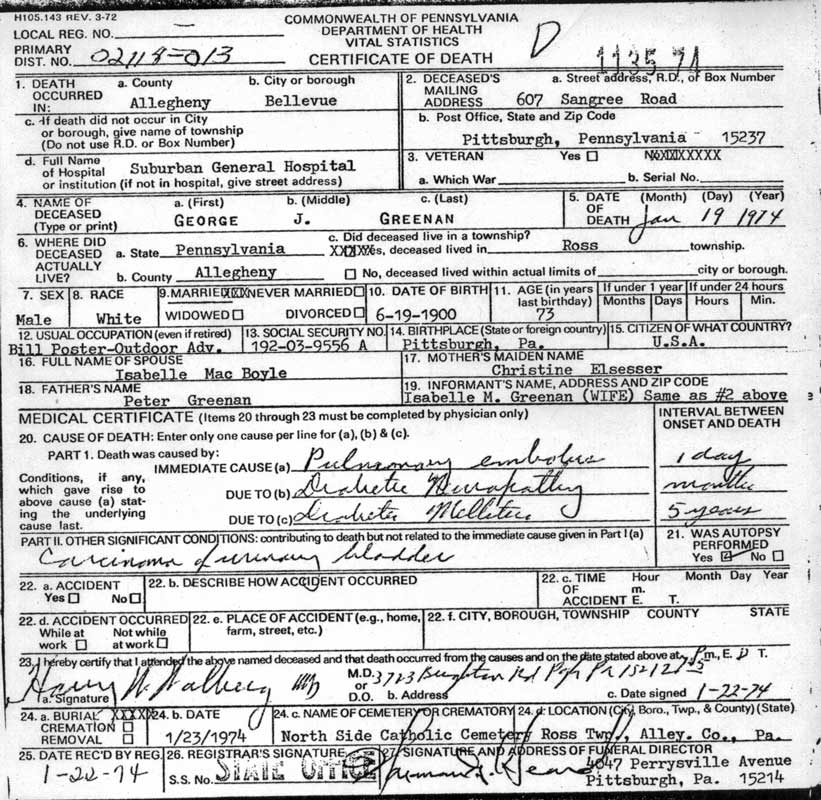 H105.143 REV. 3-72
COMMONWEALTH OF PENNSYLVANIA
DEPARTMENT OF HEALTH
VITAL STATISTICS
CERTIFICATE OF DEATH
LOCAL REG. NO.
PRIMARY
DIST. NO. 02118-013
D
1135 74
1. DEATH OCCURRED IN: a. County Allegheny b. City or borough Bellevue
c. If death did not occur in City or borough, give name of township (Do not use R.D. or Box Number)
d. Full Name of Hospital or institution (if not in hospital, give street address) Suburban General Hospital
2. DECEASED'S MAILING ADDRESS a. Street address, R.D., or Box Number 607 Sangree Road
b. Post Office, State and Zip Code
Pittsburgh, Pennsylvania 15237
3. VETERAN Yes ☐ NoXXXXXXX
a. Which War b. Serial No.
4. NAME OF DECEASED (Type or print) a. (First) GEORGE b. (Middle) J. c. (Last) GREENAN
5. DATE OF DEATH (Month) (Day) (Year) Jan 19 1974
6. WHERE DID DECEASED ACTUALLY LIVE? a. State Pennsylvania
b. County Allegheny
c. Did deceased live in a township?
XXXYes, deceased lived in Ross township.
☐ No, deceased lived within actual limits of city or borough.
7. SEX Male
8. RACE White
9. MARRIED XXX NEVER MARRIED ☐
WIDOWED ☐ DIVORCED ☐
10. DATE OF BIRTH 6-19-1900
11. AGE (in years last birthday) 73
If under 1 year Months Days
If under 24 hours Hours Min.
12. USUAL OCCUPATION (even if retired) Bill Poster-Outdoor Adv.
13. SOCIAL SECURITY NO. 192-03-9556 A
14. BIRTHPLACE (State or foreign country) Pittsburgh, Pa.
15. CITIZEN OF WHAT COUNTRY? U.S.A.
16. FULL NAME OF SPOUSE
Isabelle Mac Boyle
17. MOTHER'S MAIDEN NAME
Christine Elsesser
18. FATHER'S NAME
Peter Greenan
19. INFORMANT'S NAME, ADDRESS AND ZIP CODE
Isabelle M. Greenan (WIFE) Same as #2 above
MEDICAL CERTIFICATE (Items 20 through 23 must be completed by physician only)
INTERVAL BETWEEN ONSET AND DEATH
20. CAUSE OF DEATH: Enter only one cause per line for (a), (b) & (c).
PART 1. Death was caused by:
IMMEDIATE CAUSE (a) Pulmonary embolus 1 day
Conditions, if any, which gave rise to above cause (a) stating the underlying cause last.
DUE TO (b) Diabetic Neuropathy months
DUE TO (c) Diabetes Mellitus 5 years
PART II. OTHER SIGNIFICANT CONDITIONS: contributing to death but not related to the immediate cause given in Part I (a)
Carcinoma of urinary bladder
21. WAS AUTOPSY PERFORMED
Yes ☑ No ☐
22. a. ACCIDENT
Yes ☐ No ☐
22. b. DESCRIBE HOW ACCIDENT OCCURRED
22. c. TIME OF ACCIDENT Hour m. E. T. Month Day Year
22. d. ACCIDENT OCCURRED
While at work ☐ Not while at work ☐
22. e. PLACE OF ACCIDENT (e.g., home, farm, street, etc.)
22. f. CITY, BOROUGH, TOWNSHIP COUNTY STATE
23. I hereby certify that I attended the above named deceased and that death occurred from the causes and on the date stated above at P m., E. D T.
Harry W. Walberg MD
a. Signature
M.D. or D.O. 3723 Brighton Rd Pgh Pa 15212
b. Address
c. Date signed 1-22-74
24. a. BURIAL XXXXX
CREMATION ☐
REMOVAL ☐
24. b. DATE
1/23/1974
24. c. NAME OF CEMETERY OR CREMATORY
North Side Catholic Cemetery
24. d. LOCATION (City, Boro., Twp., & County) (State)
Ross Twp., Alley. Co., Pa.
25. DATE REC'D BY REG.
1-22-74
26. REGISTRAR'S SIGNATURE
STATE OFFICE
S.S. No.
27. SIGNATURE AND ADDRESS OF FUNERAL DIRECTOR
4047 Perrysville Avenue
Pittsburgh, Pa. 15214